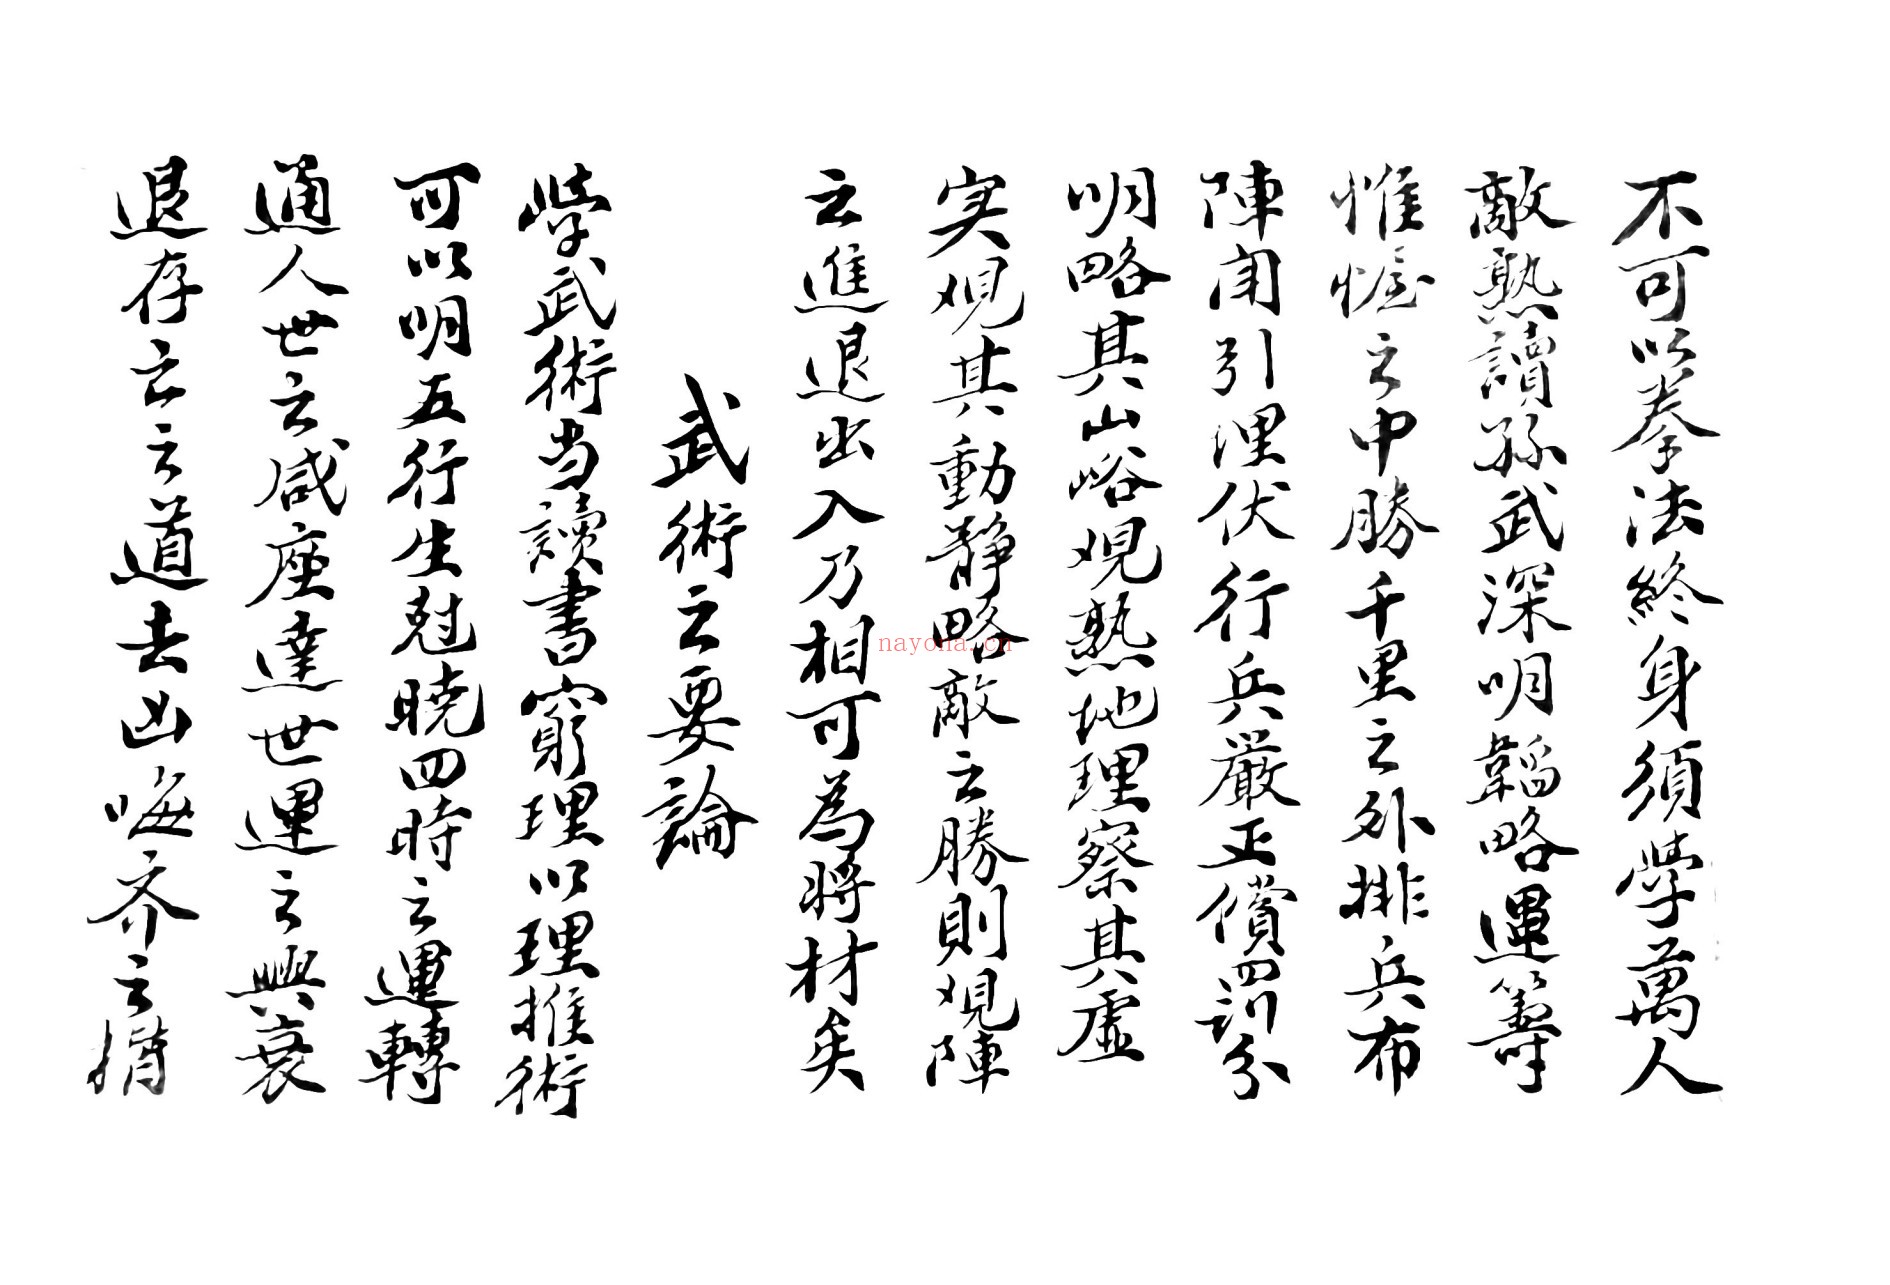 不可以拳法終身須學萬人
敵熟讀孫武深明韜略運籌
惟幄之中勝千里之外排兵布
陣闭引埋伏行兵嚴正償罰分
明略其山峪观熟地理察其虛
実观其動静略敵之勝則观陣
之進退出入乃相可為將材矣
武術之要論
學武術当讀書窮理以理推術
可以明五行生尅曉四時之運轉
通人世之咸座達世運之興衰
退存亡之道去凶悔齐之
nayona.cn